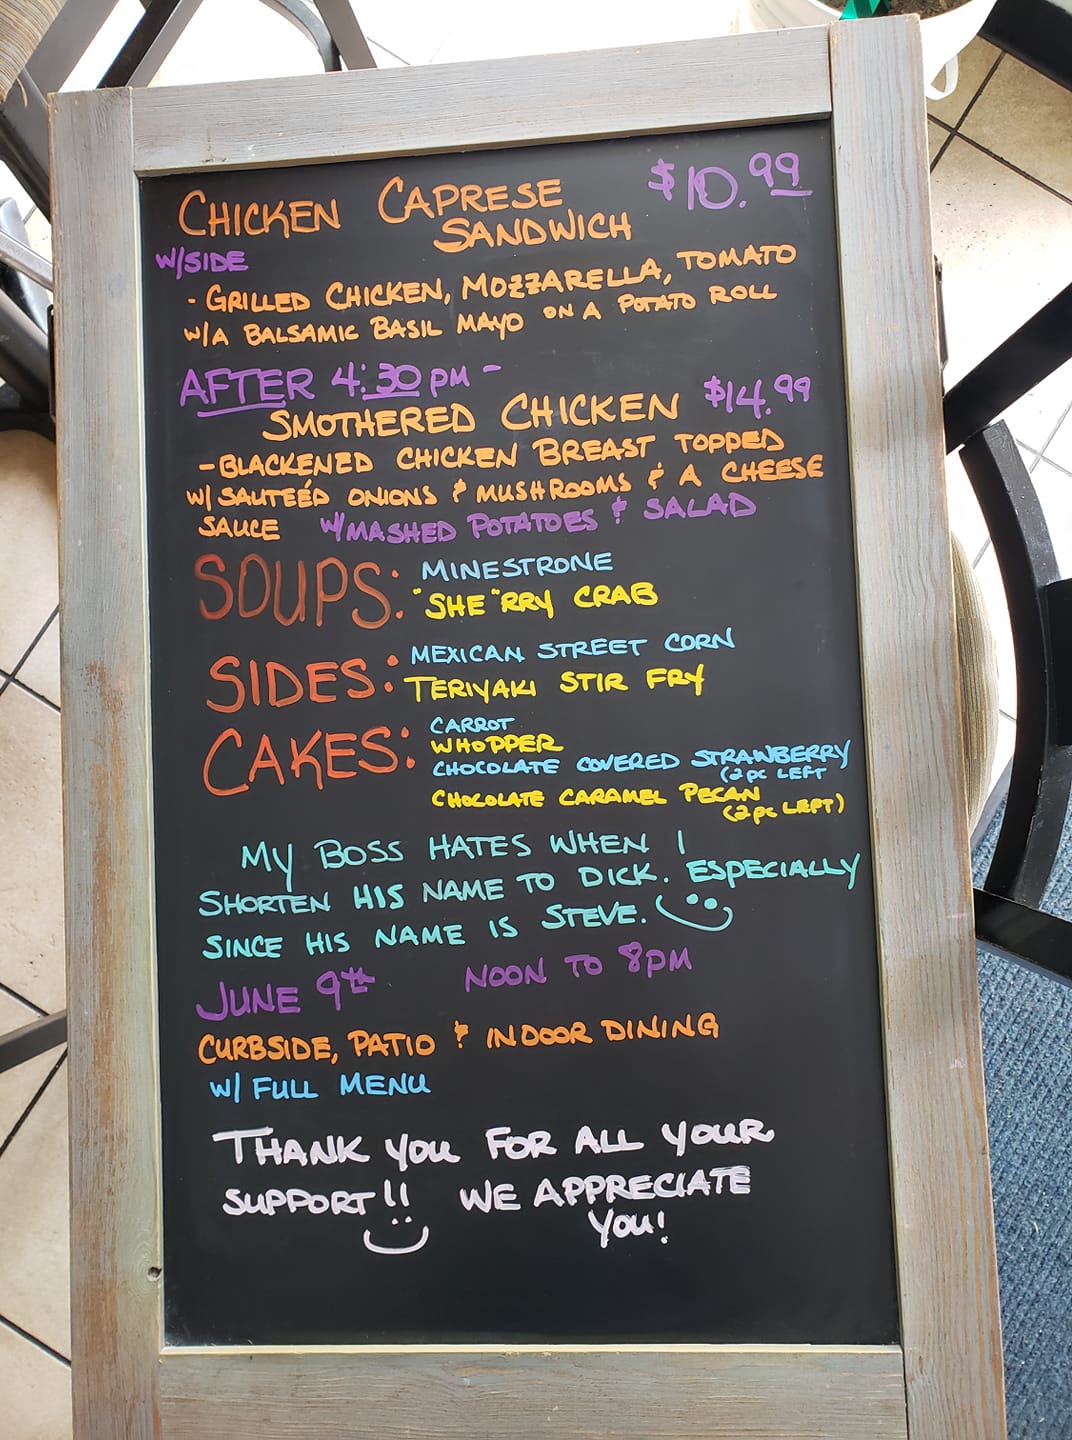 CHICKEN CAPRESE $10.99
SANDWICH
W/SIDE
- GRILLED CHICKEN, MOZZARELLA, TOMATO
W/A BALSAMIC BASIL MAYO ON A POTATO ROLL
AFTER 4:30 PM -
SMOTHERED CHICKEN $14.99
- BLACKENED CHICKEN BREAST TOPPED
W/ SAUTEÉD ONIONS & MUSHROOMS & A CHEESE
SAUCE W/MASHED POTATOES & SALAD
SOUPS: MINESTRONE
"SHE"RRY CRAB
SIDES: MEXICAN STREET CORN
TERIYAKI STIR FRY
CAKES: CARROT
WHOPPER
CHOCOLATE COVERED STRAWBERRY
(2 PC LEFT
CHOCOLATE CARAMEL PECAN
(2 PC LEFT)
MY BOSS HATES WHEN I
SHORTEN HIS NAME TO DICK. ESPECIALLY
SINCE HIS NAME IS STEVE.
JUNE 9th NOON TO 8PM
CURBSIDE, PATIO & INDOOR DINING
W/ FULL MENU
THANK YOU FOR ALL YOUR
SUPPORT!! WE APPRECIATE
YOU!